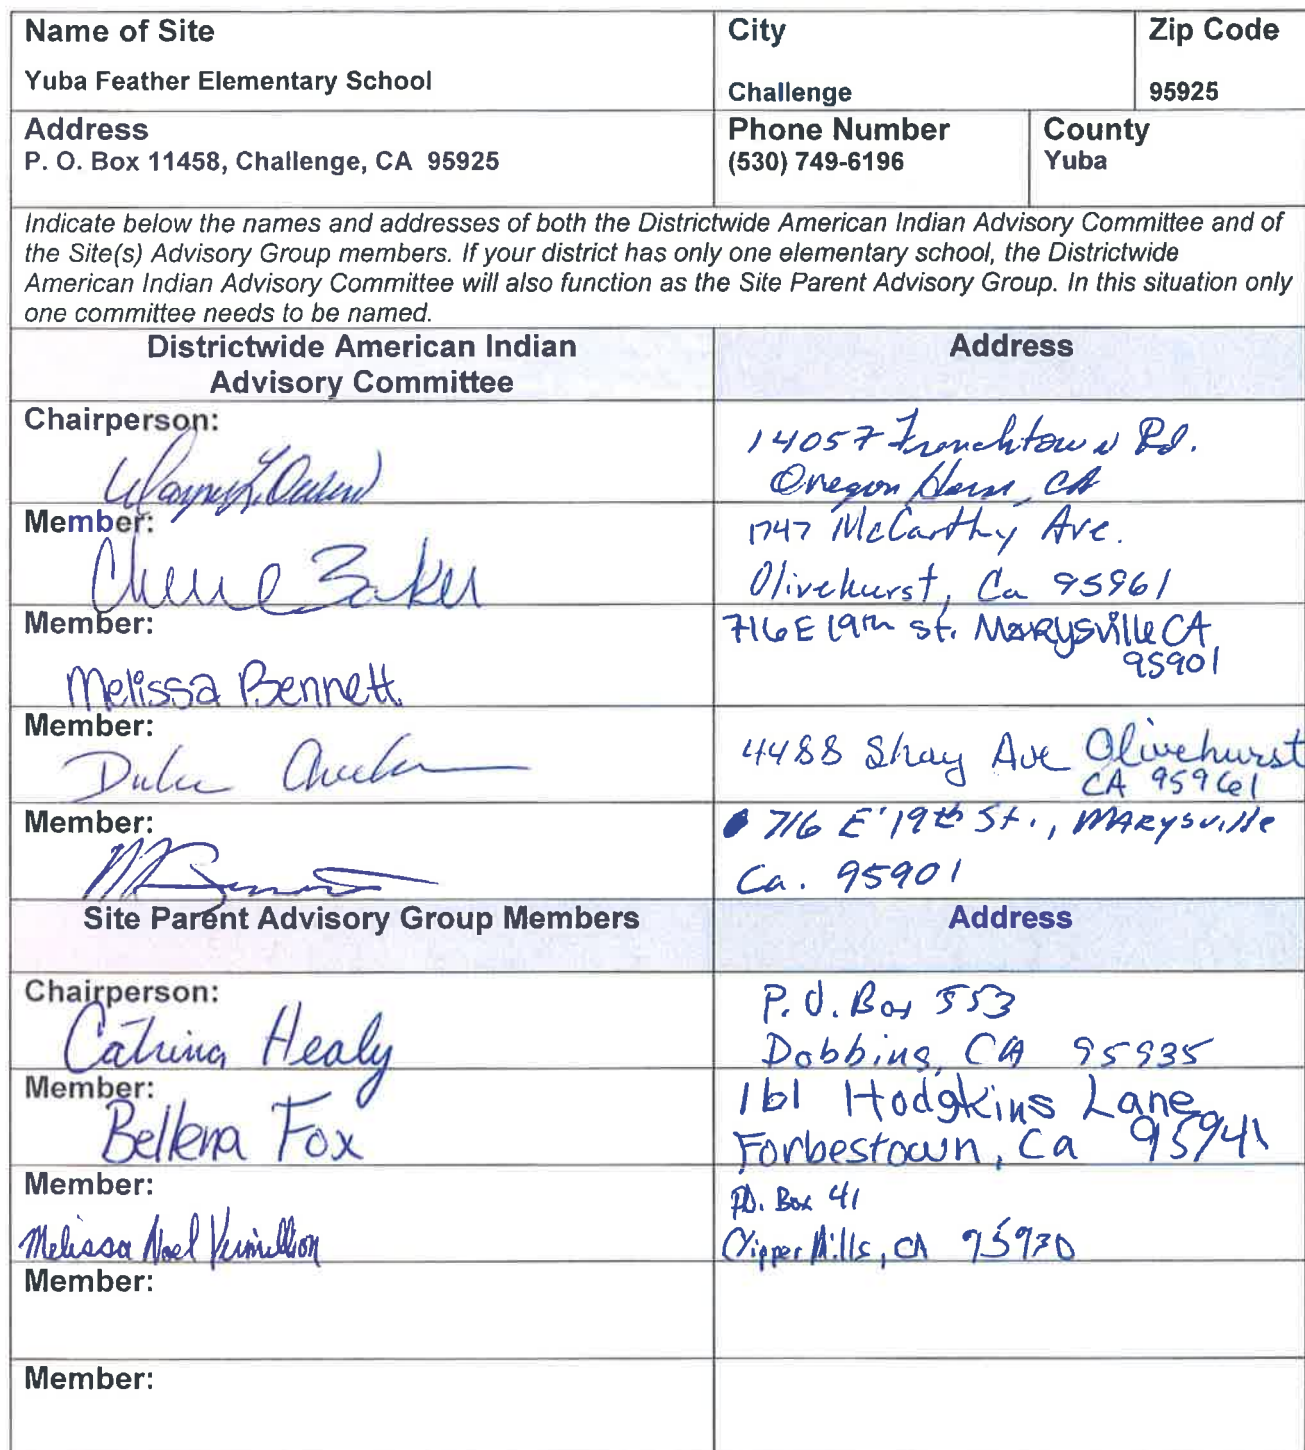 Name of Site
Yuba Feather Elementary School
City
Challenge
Zip Code
95925
Address
P. O. Box 11458, Challenge, CA 95925
Phone Number
(530) 749-6196
County
Yuba
Indicate below the names and addresses of both the Districtwide American Indian Advisory Committee and of
the Site(s) Advisory Group members. If your district has only one elementary school, the Districtwide
American Indian Advisory Committee will also function as the Site Parent Advisory Group. In this situation only
one committee needs to be named.
Districtwide American Indian
Advisory Committee
Address
Chairperson:
14057 Frenchtown Rd.
Oregon House, CA
Member:
Baker
1747 McCarthy Ave.
Olivehurst, Ca 95961
Member:
Melissa Bennett
716 E 19th st. Marysville CA
95901
Member:
4488 Shay Ave Olivehurst
CA 95961
Member:
716 E 19th St., MARysville
Ca. 95901
Site Parent Advisory Group Members
Address
Chairperson:
Catrina Healy
P.O. Box 553
Dobbins, CA 95935
Member:
Bellena Fox
161 Hodgkins Lane
Forbestown, Ca 95941
Member:
Melissa Noel Vermillion
P.O. Box 41
Clipper Mills, CA 95930
Member:
Member: